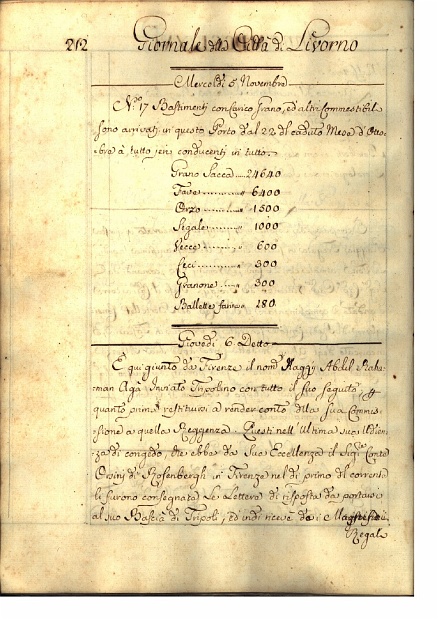 212 Giornale della Città di Livorno
Mercoldì 5 Novembre
N.º 17 Bastimenti con Carico Grano, ed altri Commestibili
sono arrivati in questo Porto dal 22 del caduto Mese d'Otto-
bre à tutto jeri conducenti in tutto.
Grano Sacca 24640
Fave 6400
Orzo 1500
Segale 1000
Vecce 600
Ceci 300
Granone 300
Ballette farina 280
Giovedì 6. Detto
È quì giunto da Firenze il nom. Haggy Abdil Rah-
man Agà Inviato Tripolino con tutto il suo seguito,
quanto prima restituirsi a render conto della sua Commis-
sione a quella Reggenza. Questi nell'Ultima sua Udien-
za di congedo, che ebbe da Sua Eccellenza il Sig. Conte
Orsini di Rosenbergh in Firenze nel dì primo del corrente
li furono consegnate Le Lettere di risposta da portare
al suo Bascià di Tripoli, ed indi ricevè da i Magnifici
Regali